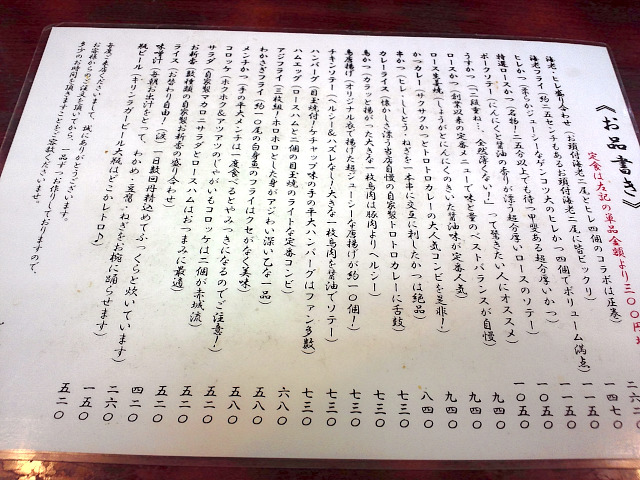 《お品書き》
定食は左記の単品金額より三〇〇円増
海老・ヒレ盛り合わせ(お頭付海老二尾とヒレ四個のコラボは圧巻)
海老フライ(約二五センチもあるお頭付海老二尾に皆ビックリ)
ヒレかつ(柔らかジューシーなゲンコツ大のヒレかつ四個でボリューム満点)
特選ロースかつ(名物!二五分以上でも待つ甲斐ある超分厚いかつ) 一〇五〇
ポークソテー(にんにくと醤油の香りが漂う超分厚いロースのソテー) 一〇五〇
うすかつ(二段重ね…全然薄くない!って驚きたい人にオススメ) 九四〇
ロースかつ(創業以来の定番メニューで味と量のベストバランスが自慢) 九四〇
ロース生姜焼(しょうがとにんにくのきいた醤油味が定番人気) 九四〇
かつカレー(サクサクかつとトロトロカレーの大人気コンビを是非!) 八四〇
串かつ(ヒレ・ししとう・ねぎを一本串に交互に刺したかつは絶品) 七三〇
カレーライス(懐かしさ漂う当店自慢の自家製トロトロカレーに舌鼓)
鳥かつ(カラッと揚がった大きな一枚鳥肉は豚肉よりヘルシー) 七三〇
鳥唐揚げ(オリジナル衣で揚げた超ジューシーな唐揚げが約一〇個!) 七三〇
チキンソテー(ヘルシー&ハズレなし!大きな一枚鳥肉を醤油でソテー) 七三〇
ハンバーグ(目玉焼付!ケチャップ味の手の平大ハンバーグはファン多数) 七三〇
ハムエッグ(ロースハムと二個の目玉焼のライトな定番コンビ)
アジフライ(三枚組!ホロホロとした身がアジわい深い乙な一品) 六八〇
わかさぎフライ(約一〇尾の白身魚のフライはクセがなく美味) 五八〇
メンチかつ(手の平大メンチは一度食べるとやみつきになるのでご注意!) 五八〇
コロッケ(ホクホク&アツアツのじゃがいもコロッケは二個が赤城流) 五二〇
サラダ(自家製マカロニサラダとロースハムはおつまみに最適) 五二〇
お新香(数種類の自家製お新香の盛り合わせ)
ライス(お替わり自由!(波)一日数回丹精込めてふっくらと炊いています) 二六〇
味噌汁(毎朝お出汁をとって、わかめ・豆腐・ねぎをお椀に踊らせます) 一五〇
瓶ビール(キリンラガービール大瓶はどこかレトロ♪) 五二〇
毎度ご来店くださいまして、誠にありがとうございます。
お客様からのご注文を頂いてから、一品ずつお作りしておりますので、
多少のお時間を頂きますことをご容赦くださいませ。